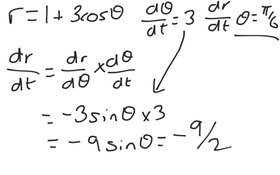 r = 1 + 3cosθ dθ/dt = 3 dr/dt θ = π/6
dr/dt = dr/dθ × dθ/dt
= -3sinθ × 3
= -9sinθ = -9/2